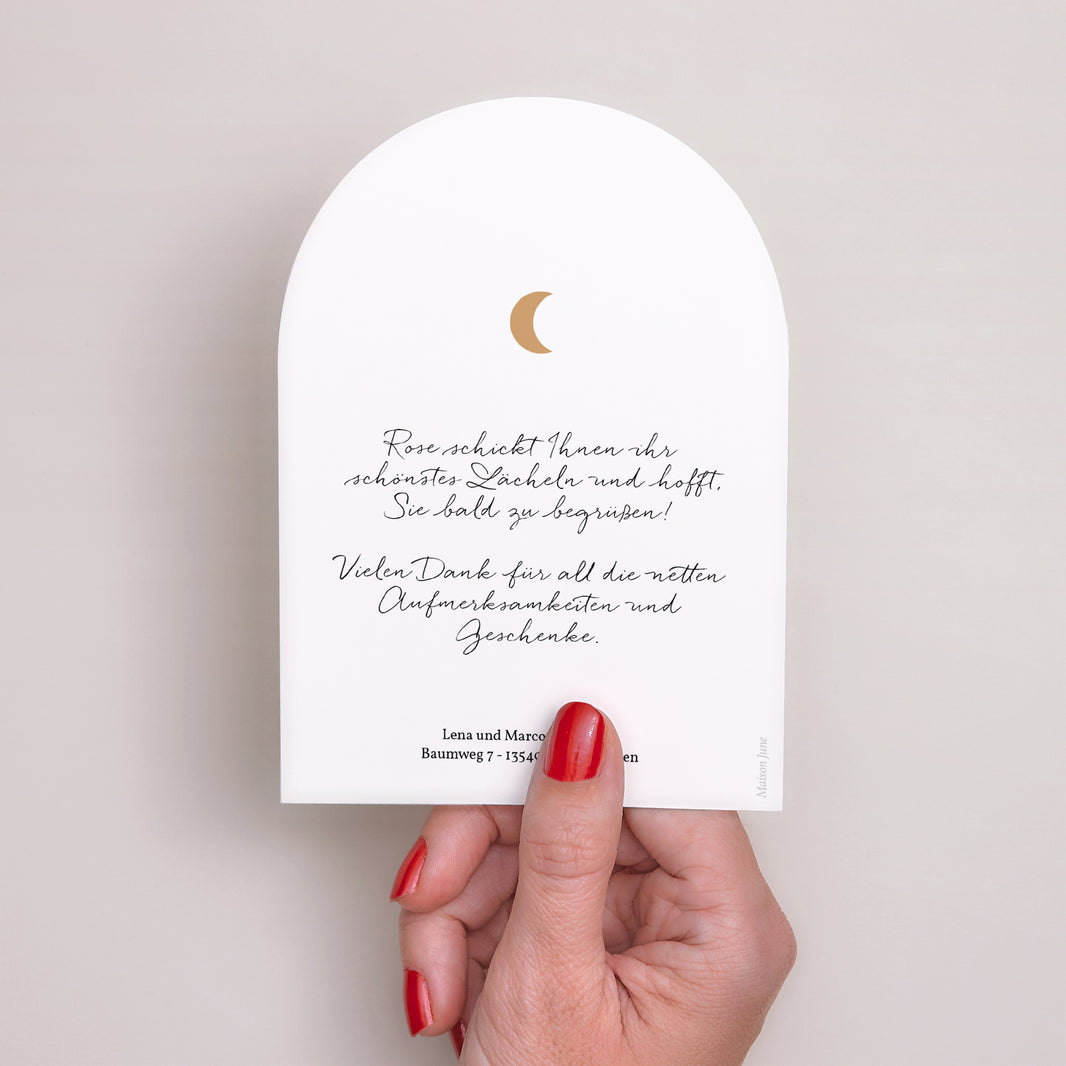 Rose schickt Ihnen ihr
schönstes Lächeln und hofft,
Sie bald zu begrüßen!
Vielen Dank für all die netten
Aufmerksamkeiten und
Geschenke.
Lena und Marco
Baumweg 7 - 13549
Maison June